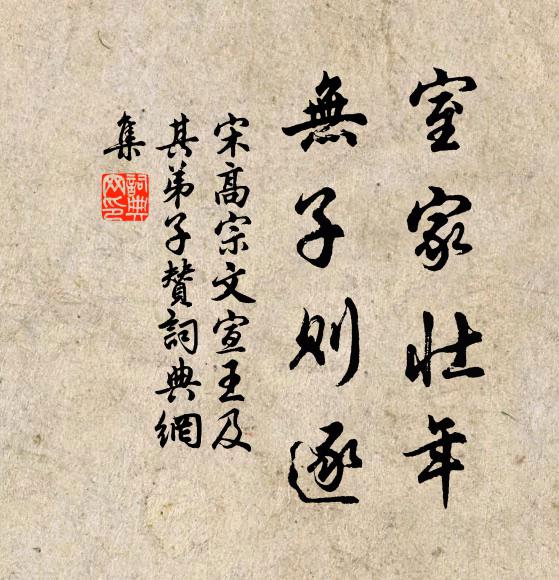 室家壯年
無子則逐
宋高宗文宣王及
其弟子贊詞典網
集
詞典網印